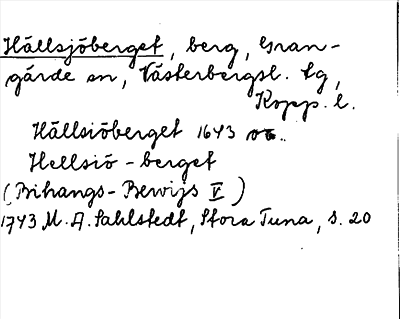 Hällsjöberget, berg, Gran-
gärde sn, Västerbergsl. tg,
Kopp. l.
Hällsiöberget 1643
Hellsiö-berget
(Bihangs-Bewijs V)
1743 M. A. Sahlstedt, Stora Tuna, s. 20